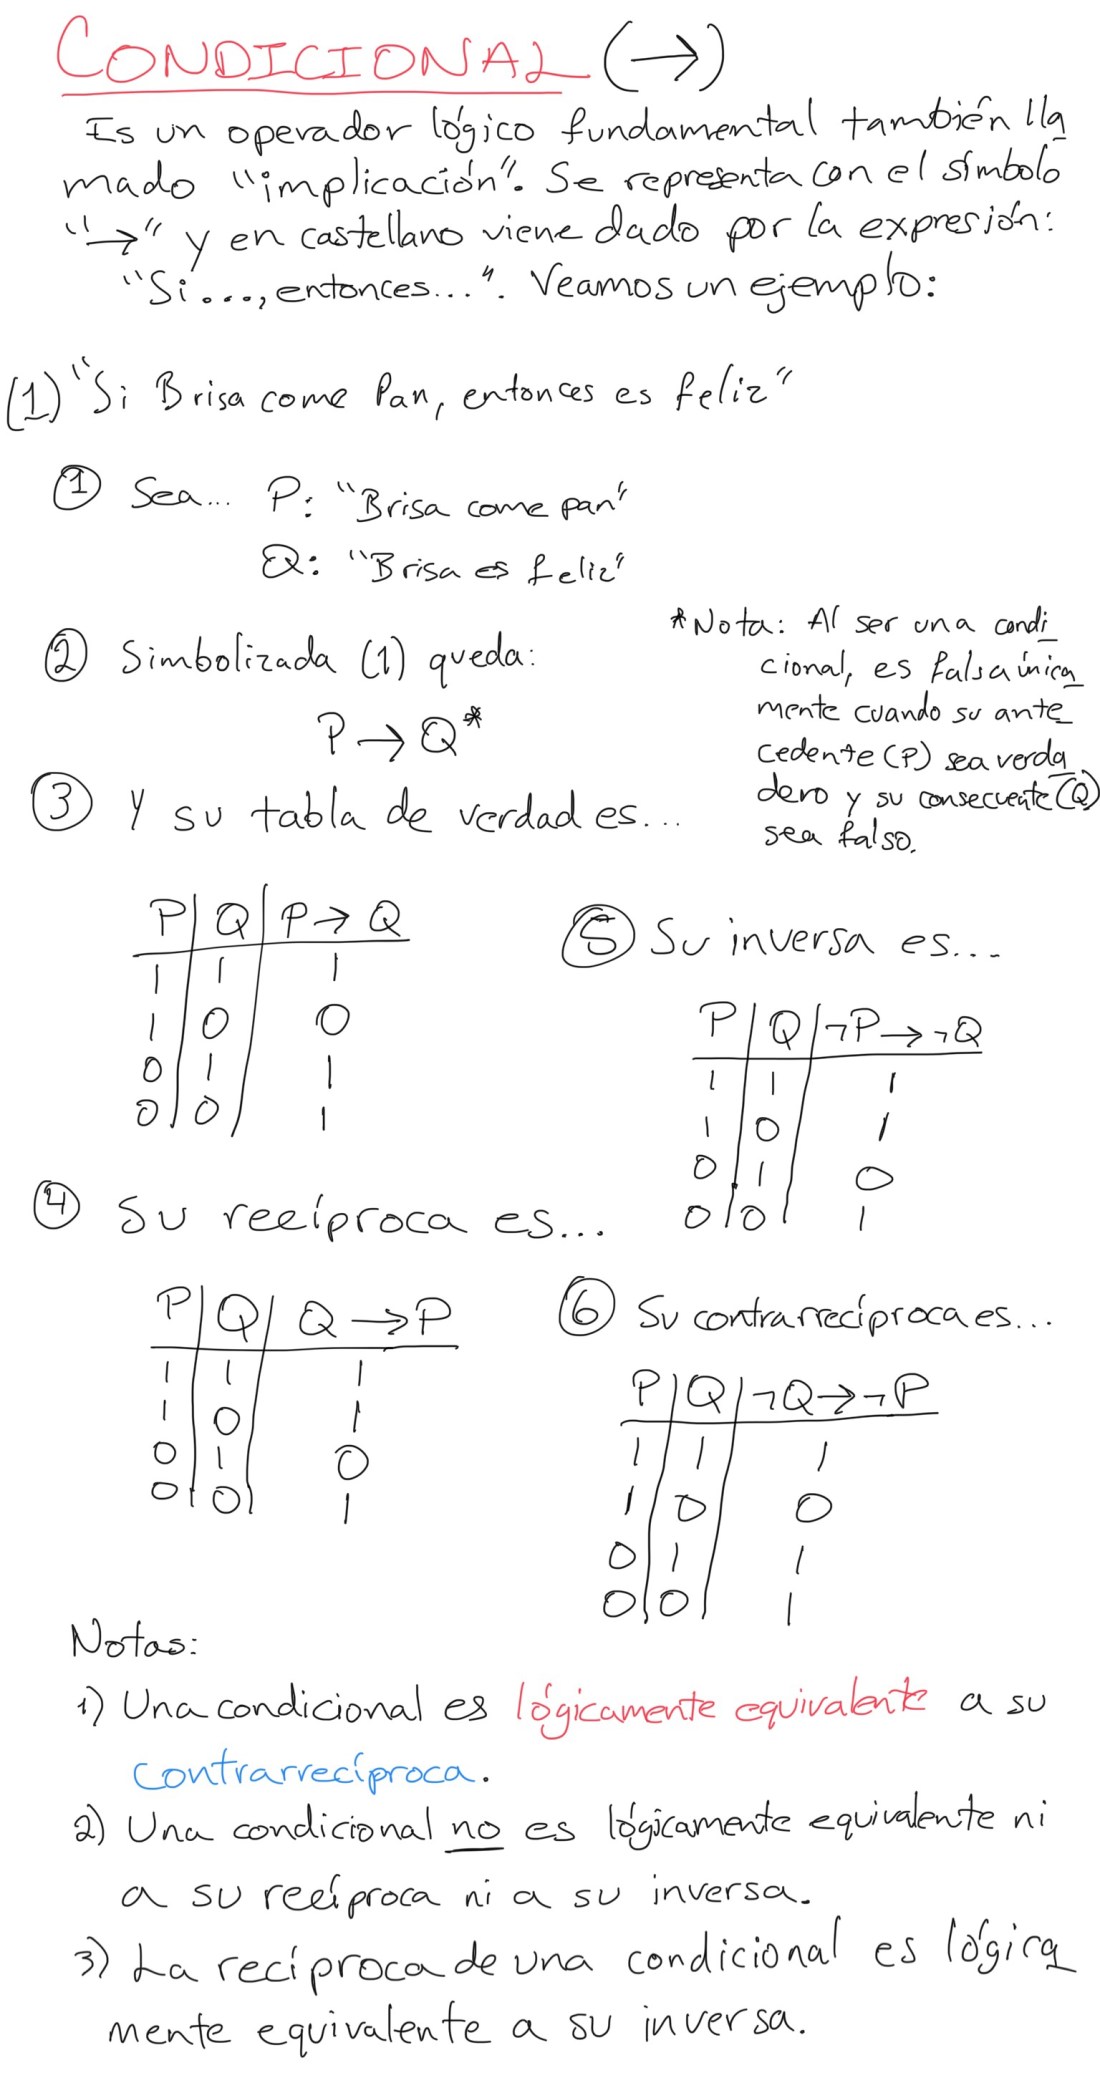 CONDICIONAL (→)
Es un operador lógico fundamental también lla
mado "implicación". Se representa con el símbolo
"→" y en castellano viene dado por la expresión:
"Si..., entonces...". Veamos un ejemplo:
(1) "Si Brisa come Pan, entonces es feliz"
① Sea... P: "Brisa come pan"
Q: "Brisa es feliz"
② Simbolizada (1) queda:
P → Q*
*Nota: Al ser una condi
cional, es falsa única
mente cuando su ante
cedente (P) sea verda
dero y su consecuente (Q)
sea falso.
③ Y su tabla de verdad es...
P | Q | P → Q
1 | 1 | 1
1 | 0 | 0
0 | 1 | 1
0 | 0 | 1
④ Su recíproca es...
P | Q | Q → P
1 | 1 | 1
1 | 0 | 1
0 | 1 | 0
0 | 0 | 1
⑤ Su inversa es...
P | Q | ¬P → ¬Q
1 | 1 | 1
1 | 0 | 1
0 | 1 | 0
0 | 0 | 1
⑥ Su contrarrecíproca es...
P | Q | ¬Q → ¬P
1 | 1 | 1
1 | 0 | 0
0 | 1 | 1
0 | 0 | 1
Notas:
1) Una condicional es lógicamente equivalente a su
contrarrecíproca.
2) Una condicional no es lógicamente equivalente ni
a su recíproca ni a su inversa.
3) La recíproca de una condicional es lógica
mente equivalente a su inversa.